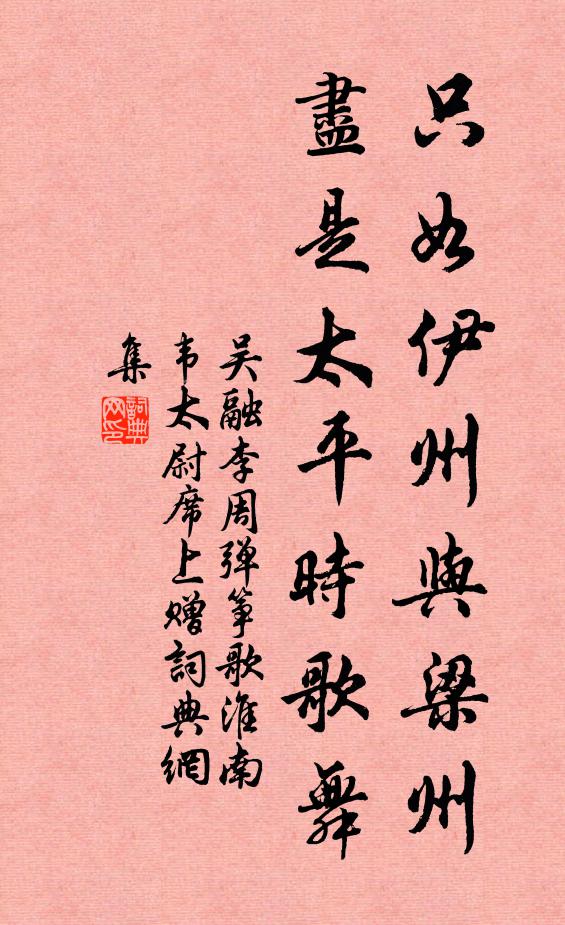 只如伊州與梁州
盡是太平時歌舞
吴融李周弹筝歌淮南
韦太尉席上赠詞典網
集
詞典
网印